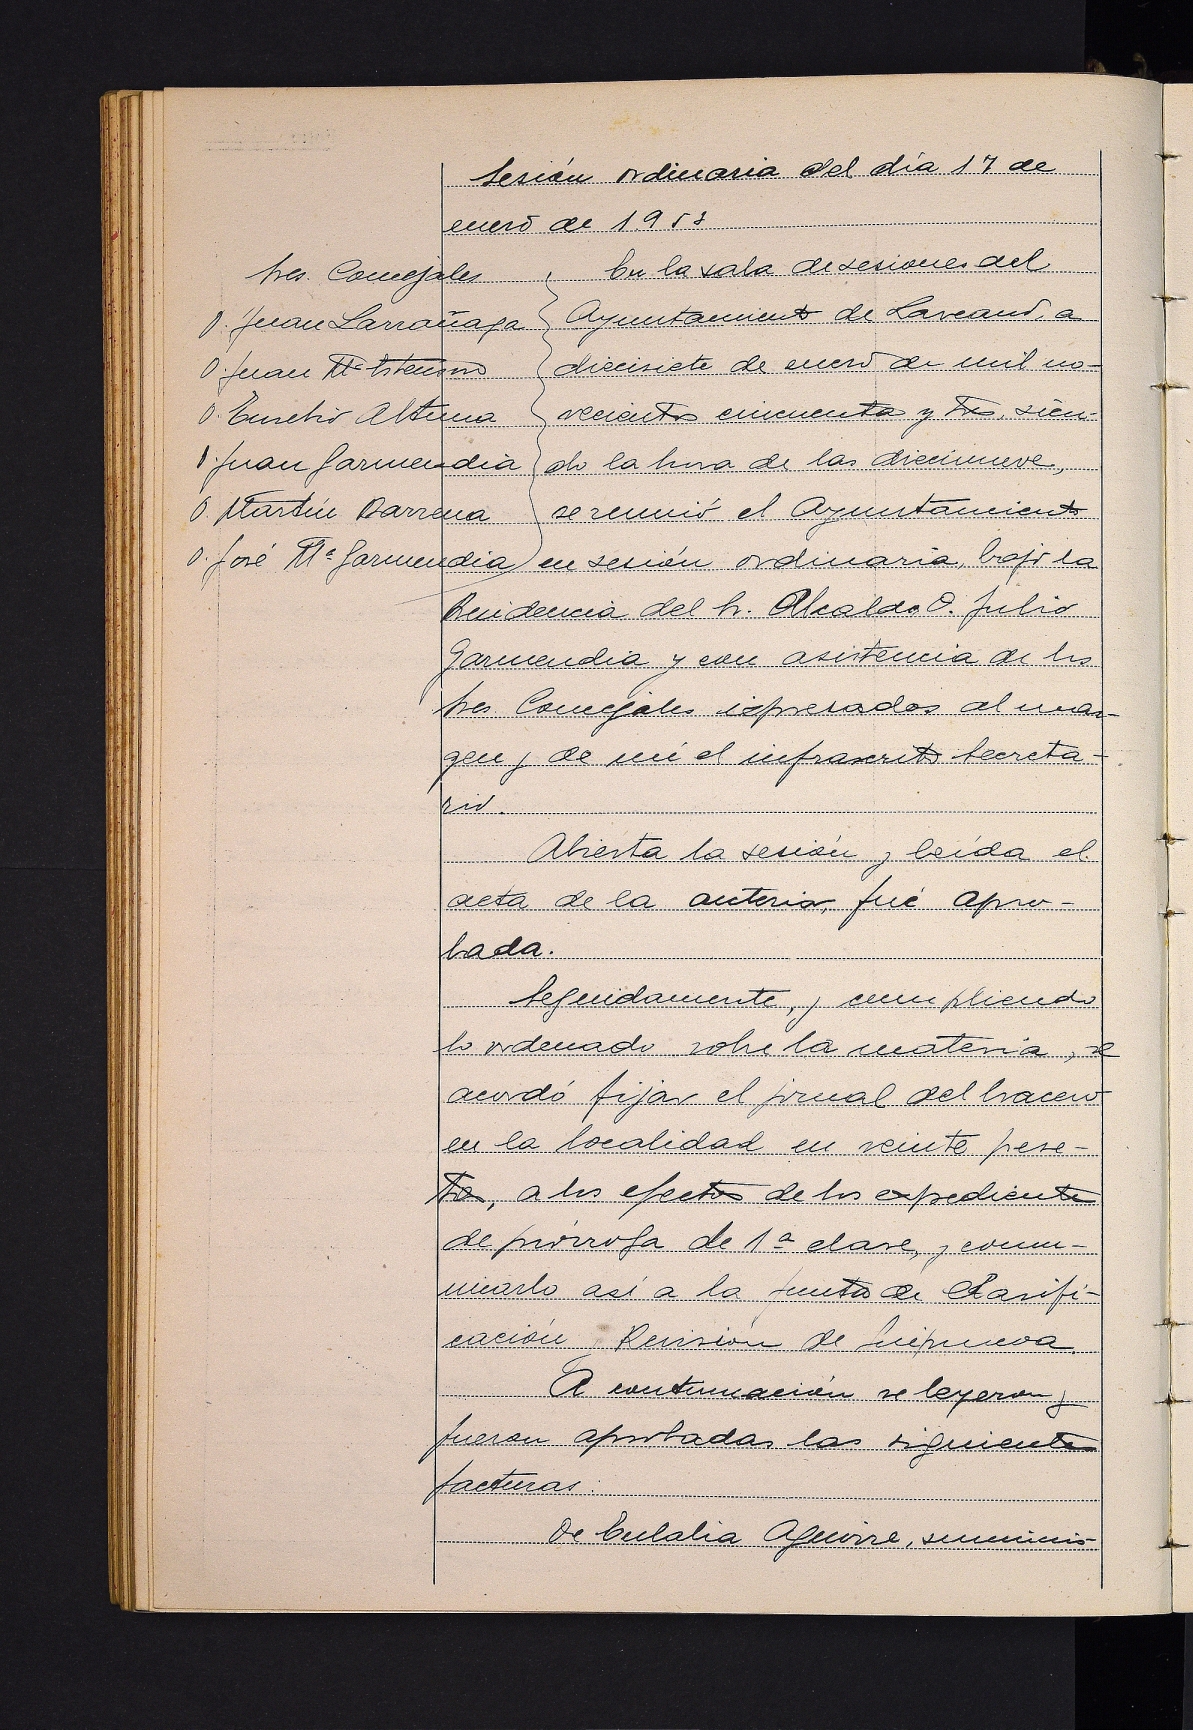 Sesión ordinaria del día 17 de
enero de 1.953
Sres. Concejales
D. Juan Larrañaga
D. Juan Mª Ostensoro
D. Eusebio Altuna
D. Juan Garmendia
D. Martín Barrena
D. José Mª Garmendia
En la sala de sesiones del
Ayuntamiento de Larraul, a
diecisiete de enero de mil no-
vecientos cincuenta y tres, sien-
do la hora de las diecinueve,
se reunió el Ayuntamiento
en sesión ordinaria, bajo la
Presidencia del Sr. Alcalde D. Julio
Garmendia y con asistencia de los
Sres. Concejales expresados al mar-
gen y de mí el infrascrito Secreta-
rio.
Abierta la sesión y leída el
acta de la anterior, fué apro-
bada.
Seguidamente, y cumpliendo
lo ordenado sobre la materia, se
acordó fijar el jornal del bracero
en la localidad en veinte pese-
tas, a los efectos de los expedientes
de prórroga de 1ª clase, y comu-
nicarlo así a la Junta de Clasifi-
cación y Revisión de Guipuzcoa.
A continuación se leyeron y
fueron aprobadas las siguientes
facturas:
De Eulalia Aguirre, suminis-